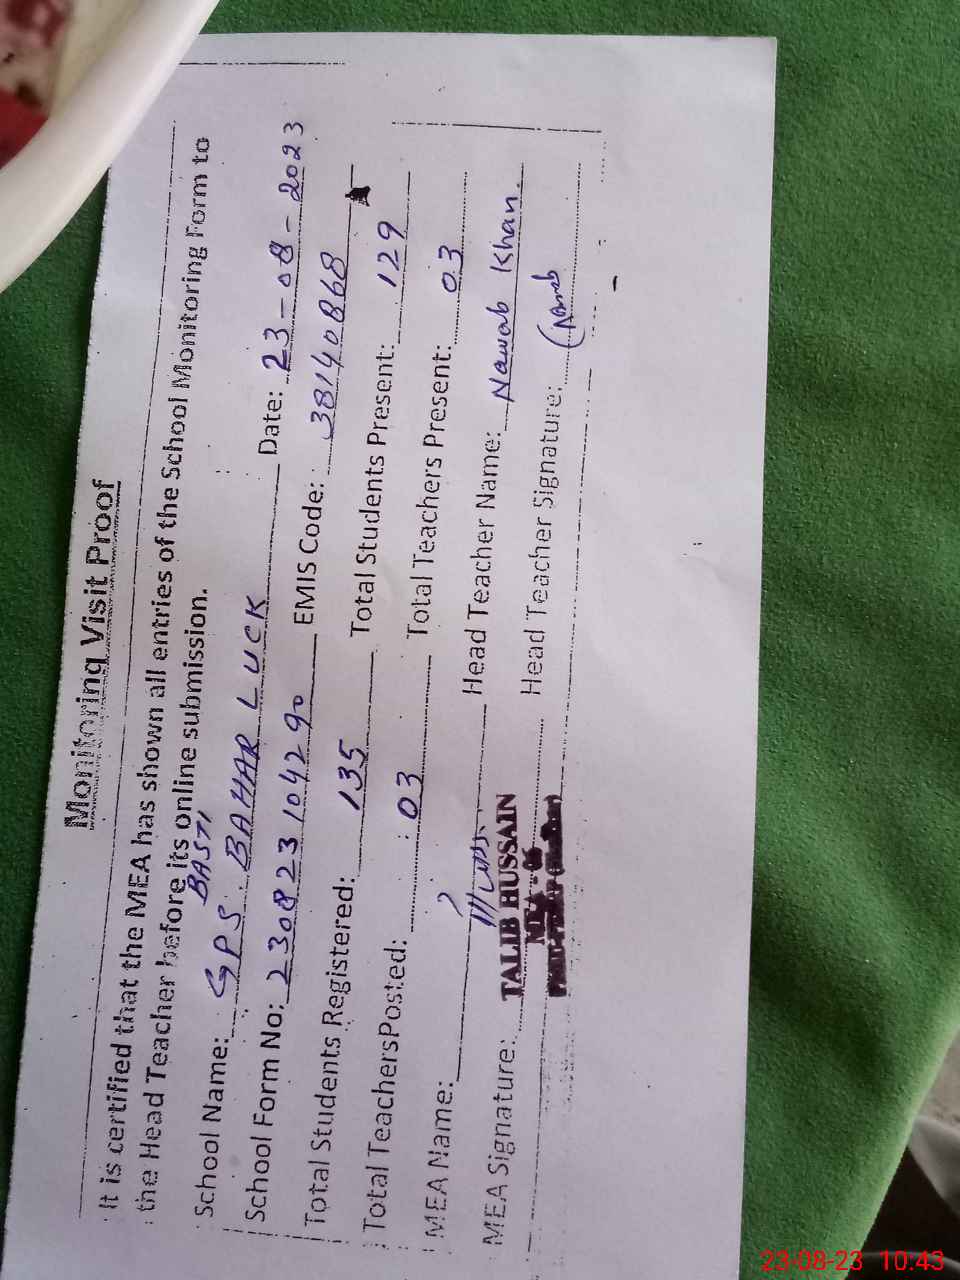 Monitoring Visit Proof
It is certified that the MEA has shown all entries of the School Monitoring Form to
the Head Teacher before its online submission.
BASTI
School Name: GPS BAHAR LUCK Date: 23-08-2023
School Form No: 230823104290 EMIS Code: 38140868
Total Students Registered: 135 Total Students Present: 129
Total TeachersPosted: 03 Total Teachers Present: 03
MEA Name: Head Teacher Name: Nawab Khan
MEA Signature: TALIB HUSSAIN Head Teacher Signature:
MEA - 06
23-08-23 10:43